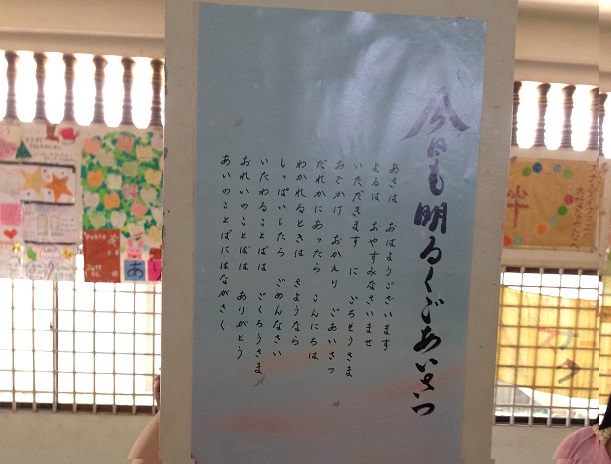 今日も明るくごあいさつ
あさは おはようございます
よるは おやすみなさいませ
いただきます に ごちそうさま
おでかけ おかえり ごあいさつ
だれかにあったら こんにちは
わかれるときは さようなら
しっぱいしたら ごめんなさい
いたわることばは ごくろうさま
おれいのことばは ありがとう
あいのことばにはながさく